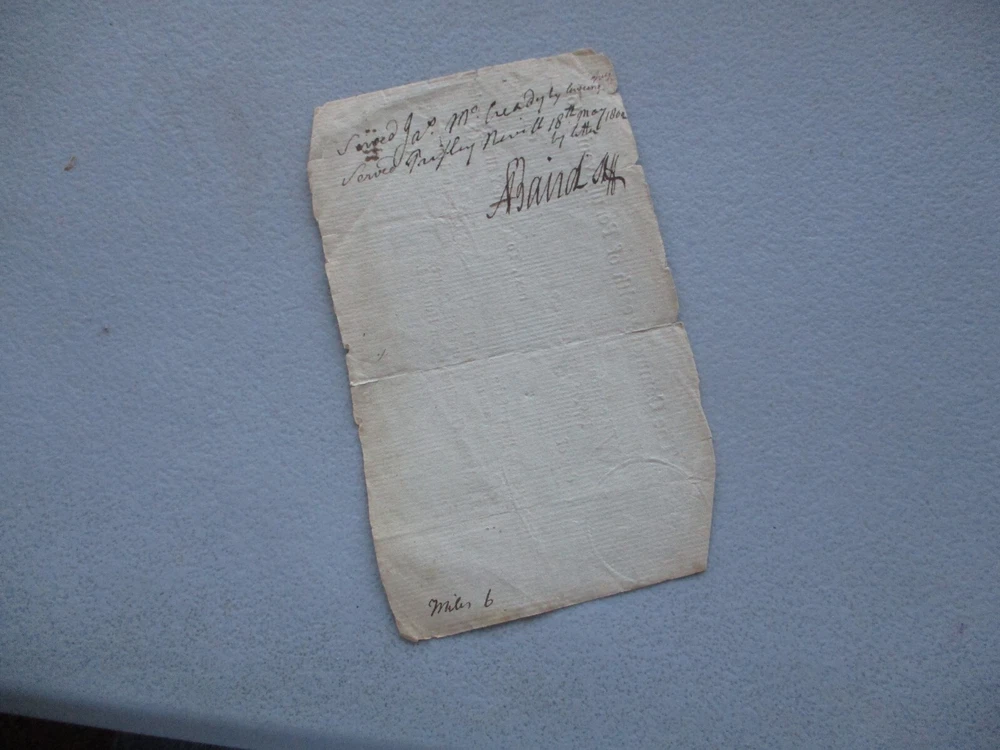 Served Jas. McCready by Leaving
Served Presley Nevill 18th May 1802
by letter
ABaird Shff
Miles 6